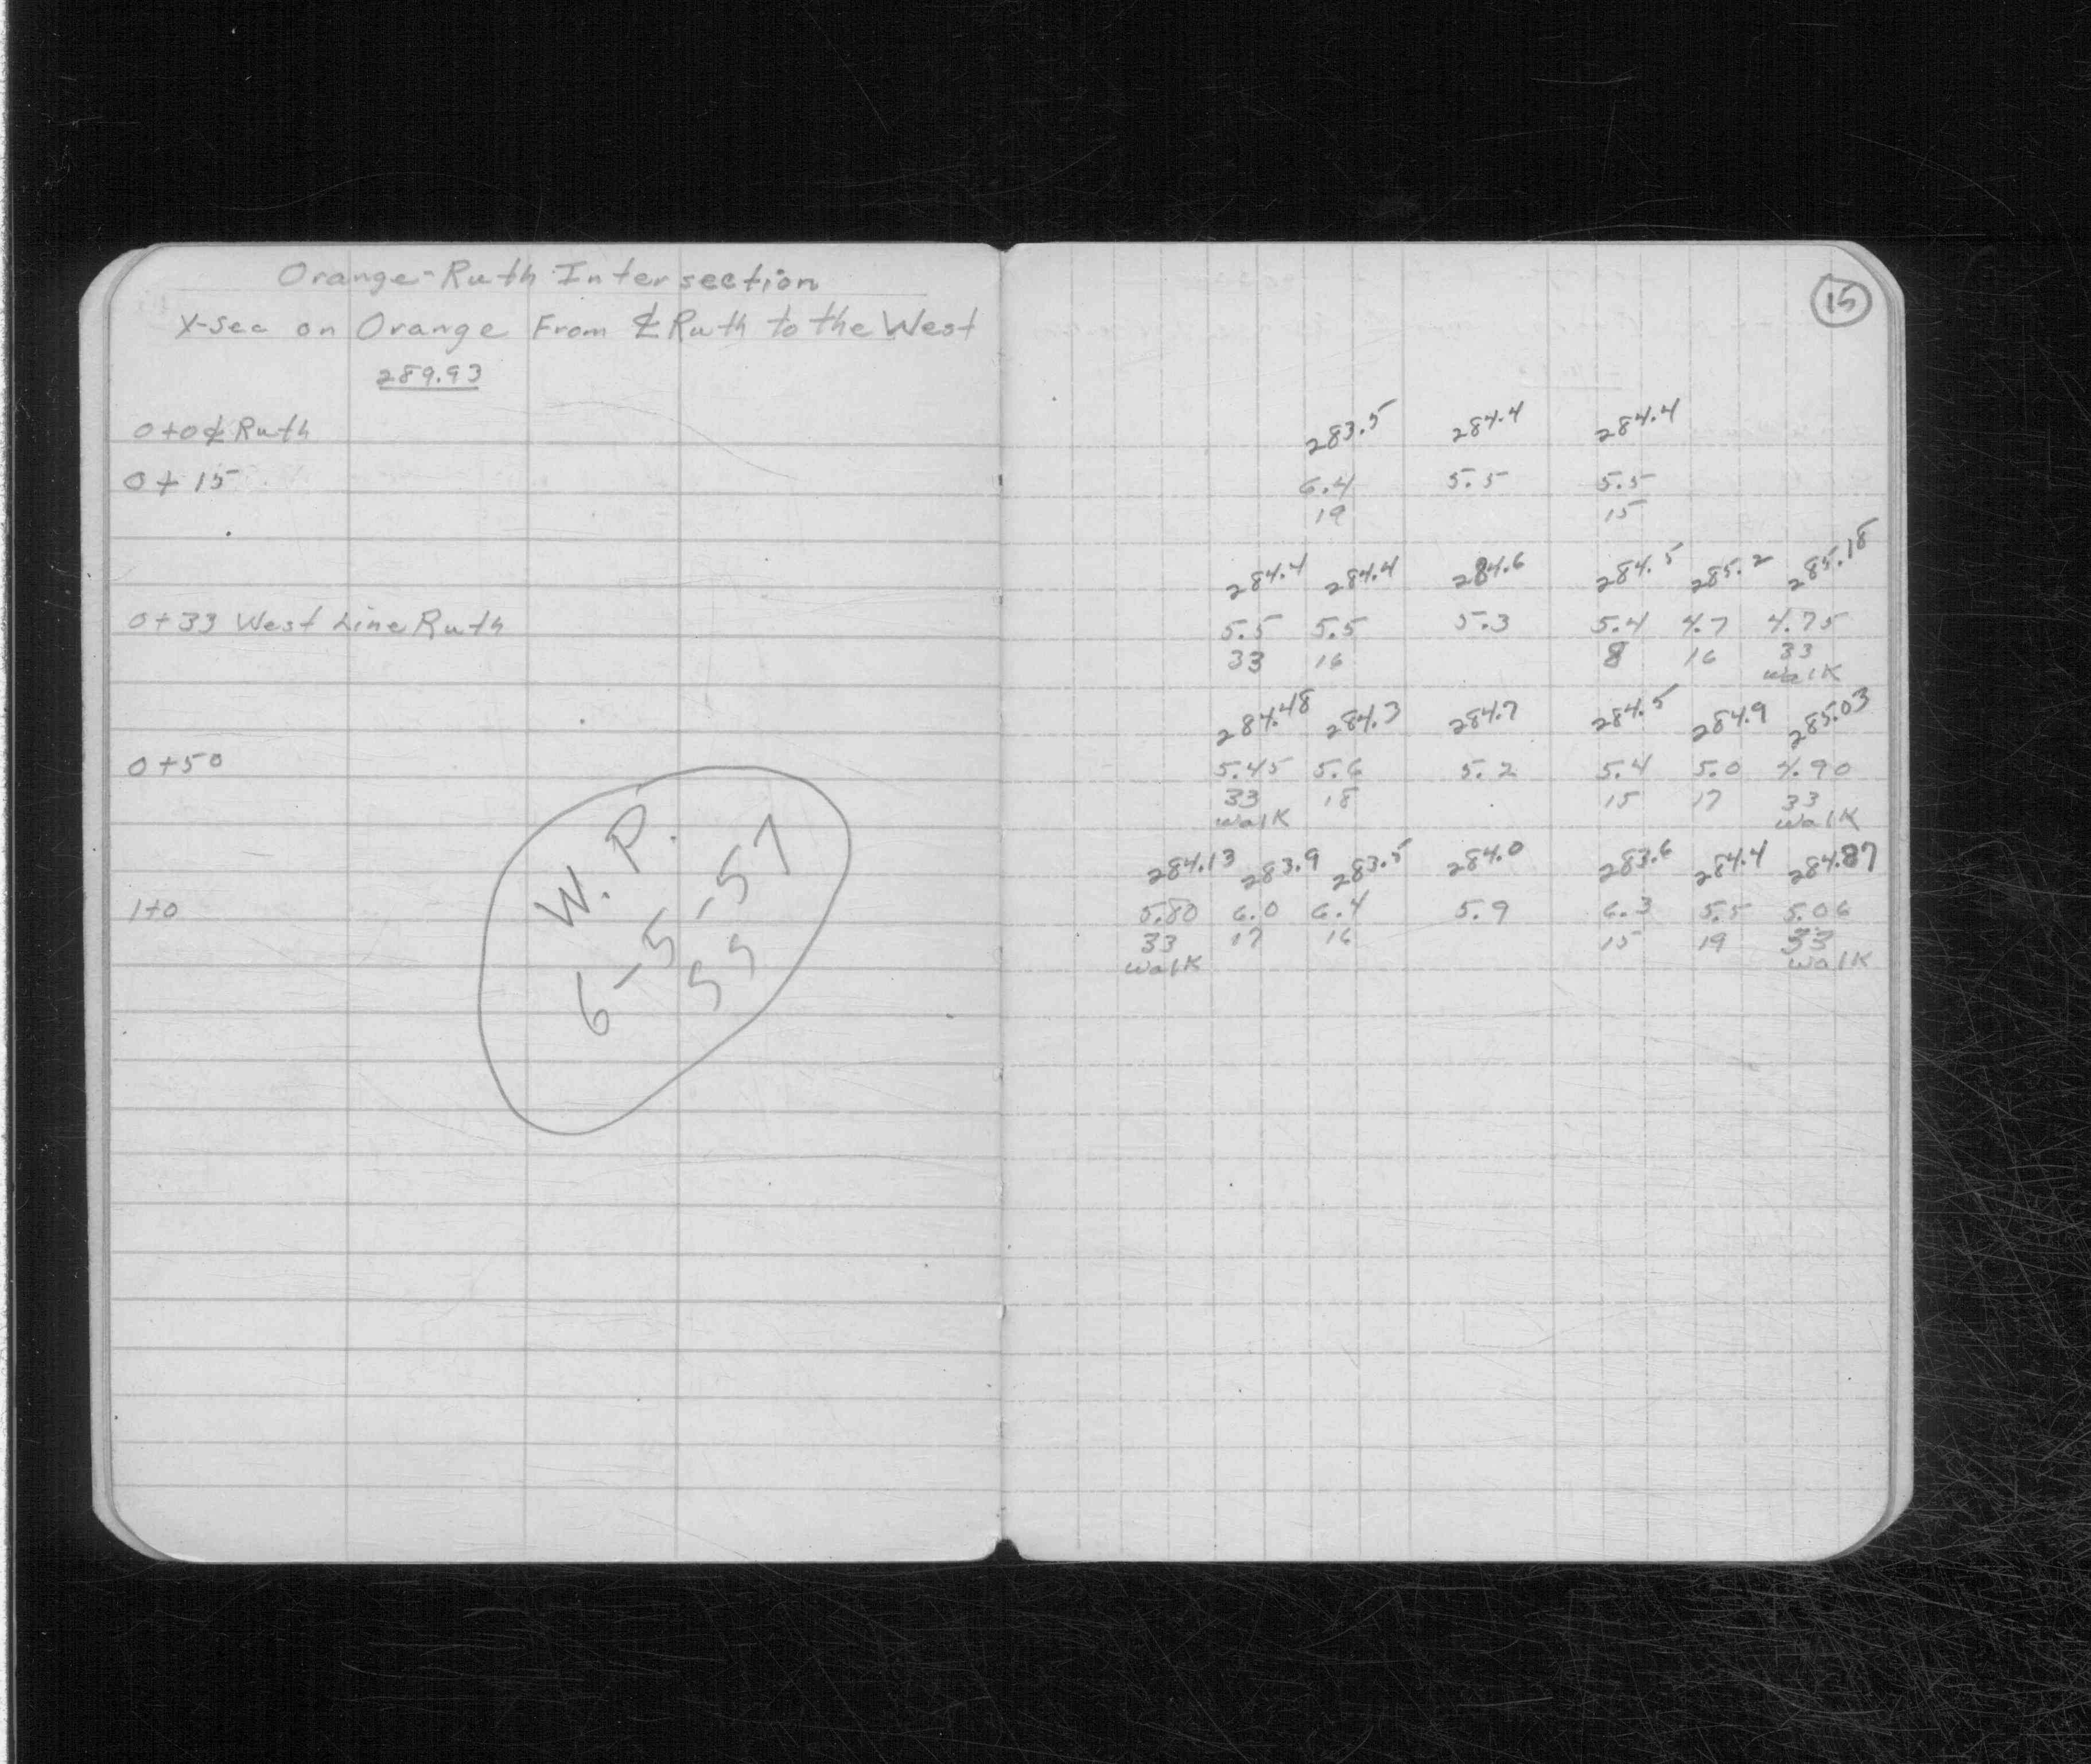 Orange-Ruth Intersection
X-Sec on Orange From ℄ Ruth to the West
289.93
0+0 ℄ Ruth
0+15
0+33 West Line Ruth
0+50
1+0
W. P.
6-5-57
SS
15
283.5 284.4 284.4
6.4 5.5 5.5
19 15
284.4 284.4 284.6 284.5 285.2 285.18
5.5 5.5 5.3 5.4 4.7 4.75
33 16 8 16 33
walk
284.48 284.3 284.7 284.5 284.9 285.03
5.45 5.6 5.2 5.4 5.0 4.90
33 18 15 17 33
walk walk
284.13 283.9 283.5 284.0 283.6 284.4 284.87
5.80 6.0 6.4 5.9 6.3 5.5 5.06
33 17 16 15 19 33
walk walk